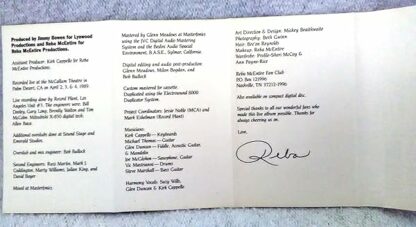 Produced by Jimmy Bowen for Lynwood
Productions and Reba McEntire for
Reba McEntire Productions.
Assistant Producer: Kirk Cappello for Reba
McEntire Productions.
Recorded live at the McCallum Theatre in
Palm Desert, CA on April 2, 3, 6, 1989.
Live recording done by Record Plant, Los
Angeles Unit #1. The engineers were: Bill
McCabe. Mitsubishi X-850 digital tech:
Additional overdubs done at Sound Stage and
Emerald Studios.
Overdub and mix engineer: Bob Bullock
Second Engineers: Russ Martin, Mark J.
Coddington, Marty Williams, Julian King, and
David Boyer
Mixed at Masterfonics.
Mastered by Glenn Meadows at Masterfonics
using the JVC Digital Audio Mastering
System and the Bedini Audio Special
Environment, B.A.S.E., Sylmar, California
Digital editing and audio post-production:
Glenn Meadows, Milan Bogdan, and
Bob Bullock
Custom mastered for cassette.
Duplicated using the Electrosound 8000
Duplicator System.
Project Coordinators: Jessie Noble (MCA) and
Mark Eshelman (Record Plant)
Musicians:
Kirk Cappello — Keyboards
Michael Thomas — Guitar
Glen Duncan — Fiddle, Acoustic Guitar,
& Mandolin
Joe McGlohon — Saxophone, Guitar
Vic Mastrianni — Drums
Steve Marshall — Bass Guitar
Harmony Vocals: Suzy Wills,
Glen Duncan & Kirk Cappello
Art Direction & Design: Mickey Braithwaite
Photography: Beth Gwinn
Makeup: Reba McEntire
Wardrobe: Preble-Sheri McCoy &
Ann Payne-Rice
Reba McEntire Fan Club
PO Box 121996
Nashville, TN 37212-1996
Also available on compact digital disc.
Special thanks to all our wonderful fans who
made this live album possible. Thanks for
always cheering us on.
Love,
Reba